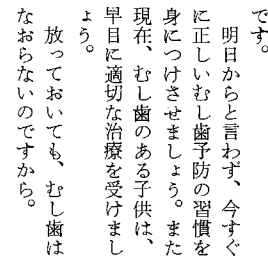 です。
　明日からと言わず、今すぐ
に正しいむし歯予防の習慣を
身につけさせましょう。また
現在、むし歯のある子供は、
早目に適切な治療を受けまし
ょう。
　放っておいても、むし歯は
なおらないのですから。